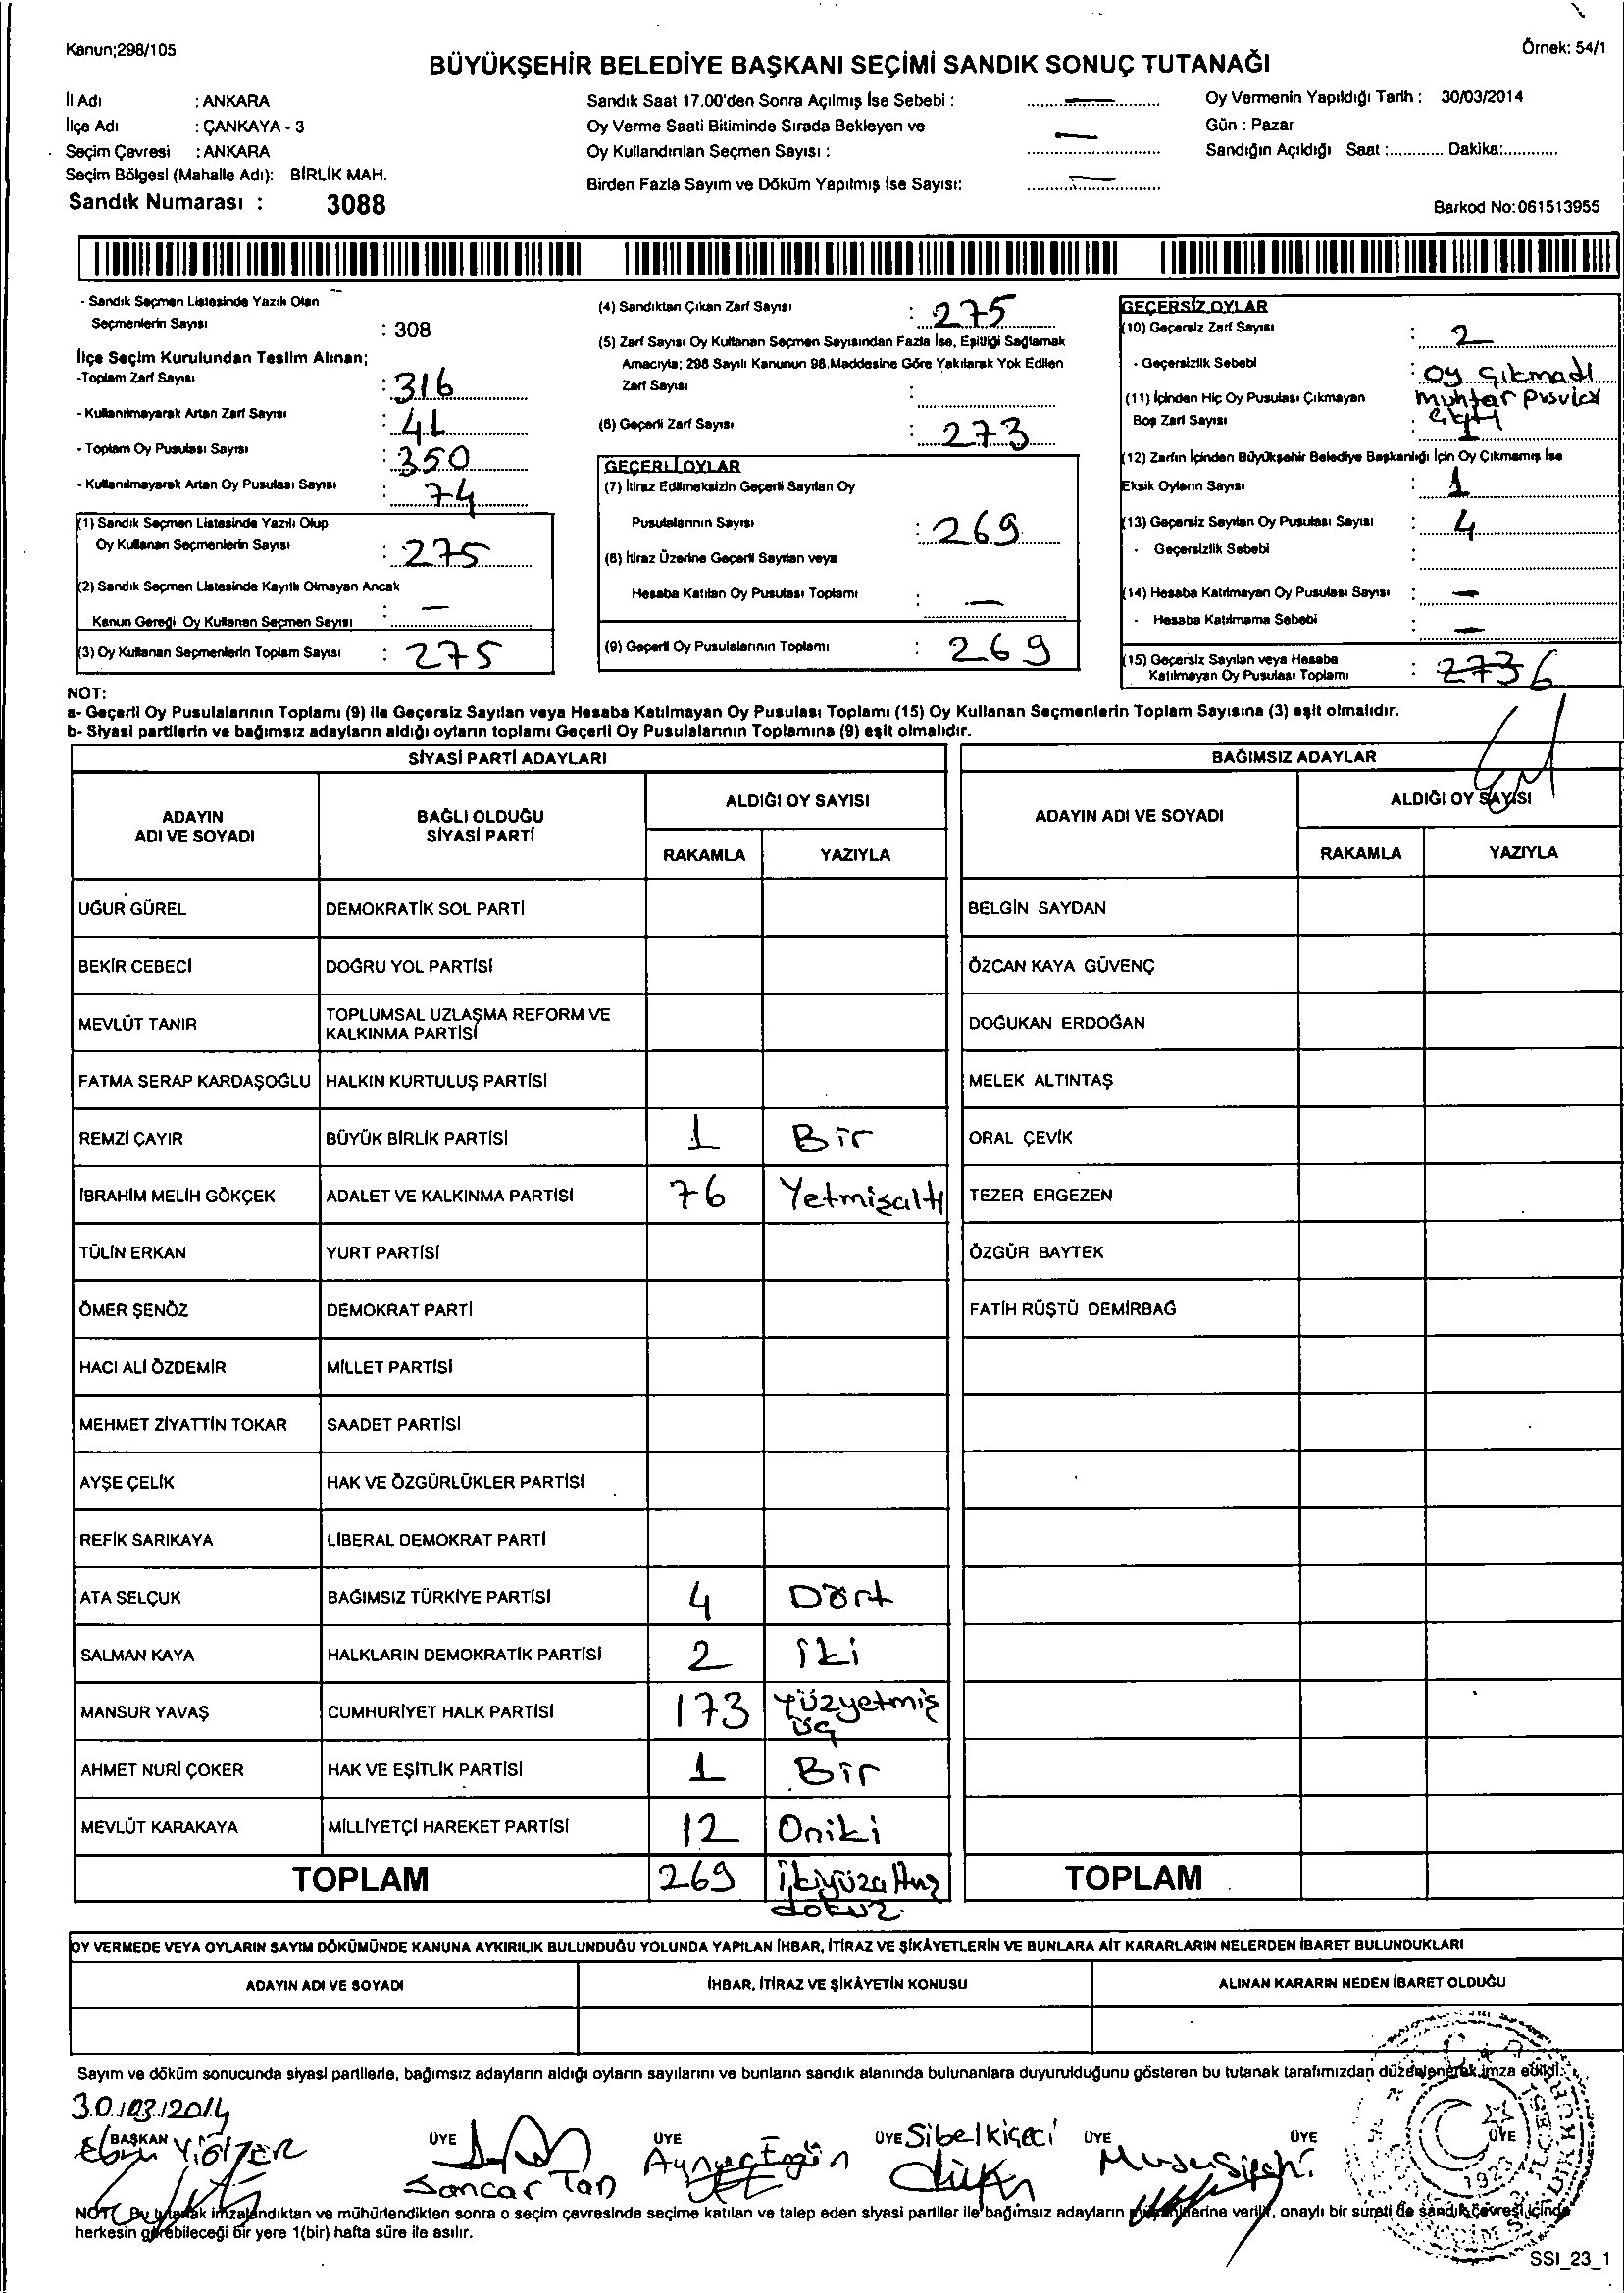 Kanun;298/105
Örnek: 54/1
BÜYÜKŞEHİR BELEDİYE BAŞKANI SEÇİMİ SANDIK SONUÇ TUTANAĞI
İl Adı : ANKARA
İlçe Adı : ÇANKAYA - 3
Seçim Çevresi : ANKARA
Seçim Bölgesi (Mahalle Adı): BİRLİK MAH.
Sandık Numarası : 3088
Sandık Saat 17.00'den Sonra Açılmış İse Sebebi : —
Oy Verme Saati Bitiminde Sırada Bekleyen ve
Oy Kullandırılan Seçmen Sayısı : —
Birden Fazla Sayım ve Döküm Yapılmış İse Sayısı: —
Oy Vermenin Yapıldığı Tarih : 30/03/2014
Gün : Pazar
Sandığın Açıldığı Saat :............ Dakika:............
Barkod No:061513955
- Sandık Seçmen Listesinde Yazılı Olan
Seçmenlerin Sayısı : 308
İlçe Seçim Kurulundan Teslim Alınan;
-Toplam Zarf Sayısı : 316
- Kullanılmayarak Artan Zarf Sayısı : 41
- Toplam Oy Pusulası Sayısı : 350
- Kullanılmayarak Artan Oy Pusulası Sayısı : 74
(1) Sandık Seçmen Listesinde Yazılı Olup
Oy Kullanan Seçmenlerin Sayısı : 275
(2) Sandık Seçmen Listesinde Kayıtlı Olmayan Ancak
Kanun Gereği Oy Kullanan Seçmen Sayısı : —
(3) Oy Kullanan Seçmenlerin Toplam Sayısı : 275
(4) Sandıktan Çıkan Zarf Sayısı : 275
(5) Zarf Sayısı Oy Kullanan Seçmen Sayısından Fazla İse, Eşitliği Sağlamak
Amacıyla; 298 Sayılı Kanunun 98.Maddesine Göre Yakılarak Yok Edilen
Zarf Sayısı :
(6) Geçerli Zarf Sayısı : 273
GEÇERLİ OYLAR
(7) İtiraz Edilmeksizin Geçerli Sayılan Oy
Pusulalarının Sayısı : 269
(8) İtiraz Üzerine Geçerli Sayılan veya
Hesaba Katılan Oy Pusulası Toplamı : —
(9) Geçerli Oy Pusulalarının Toplamı : 269
GEÇERSİZ OYLAR
(10) Geçersiz Zarf Sayısı : 2
- Geçersizlik Sebebi : oy çıkmadı
muhtar
çıktı
(11) İçinden Hiç Oy Pusulası Çıkmayan
Boş Zarf Sayısı : 1
(12) Zarfın İçinden Büyükşehir Belediye Başkanlığı İçin Oy Çıkmamış İse
Eksik Oyların Sayısı : 1
(13) Geçersiz Sayılan Oy Pusulası Sayısı : 4
- Geçersizlik Sebebi :
(14) Hesaba Katılmayan Oy Pusulası Sayısı : —
- Hesaba Katılmama Sebebi : —
(15) Geçersiz Sayılan veya Hesaba
Katılmayan Oy Pusulası Toplamı : 273 6
NOT:
a- Geçerli Oy Pusulalarının Toplamı (9) ile Geçersiz Sayılan veya Hesaba Katılmayan Oy Pusulası Toplamı (15) Oy Kullanan Seçmenlerin Toplam Sayısına (3) eşit olmalıdır.
b- Siyasi partilerin ve bağımsız adayların aldığı oyların toplamı Geçerli Oy Pusulalarının Toplamına (9) eşit olmalıdır.
SİYASİ PARTİ ADAYLARI
BAĞIMSIZ ADAYLAR
ADAYIN
ADI VE SOYADI
BAĞLI OLDUĞU
SİYASİ PARTİ
ALDIĞI OY SAYISI
RAKAMLA YAZIYLA
ADAYIN ADI VE SOYADI
ALDIĞI OY SAYISI
RAKAMLA YAZIYLA
UĞUR GÜREL DEMOKRATİK SOL PARTİ BELGİN SAYDAN
BEKİR CEBECİ DOĞRU YOL PARTİSİ ÖZCAN KAYA GÜVENÇ
MEVLÜT TANIR TOPLUMSAL UZLAŞMA REFORM VE
KALKINMA PARTİSİ DOĞUKAN ERDOĞAN
FATMA SERAP KARDAŞOĞLU HALKIN KURTULUŞ PARTİSİ MELEK ALTINTAŞ
REMZİ ÇAYIR BÜYÜK BİRLİK PARTİSİ 1 Bir ORAL ÇEVİK
İBRAHİM MELİH GÖKÇEK ADALET VE KALKINMA PARTİSİ 76 Yetmişaltı TEZER ERGEZEN
TÜLİN ERKAN YURT PARTİSİ ÖZGÜR BAYTEK
ÖMER ŞENÖZ DEMOKRAT PARTİ FATİH RÜŞTÜ DEMİRBAĞ
HACI ALİ ÖZDEMİR MİLLET PARTİSİ
MEHMET ZİYATTİN TOKAR SAADET PARTİSİ
AYŞE ÇELİK HAK VE ÖZGÜRLÜKLER PARTİSİ
REFİK SARIKAYA LİBERAL DEMOKRAT PARTİ
ATA SELÇUK BAĞIMSIZ TÜRKİYE PARTİSİ 4 Dört
SALMAN KAYA HALKLARIN DEMOKRATİK PARTİSİ 2 iki
MANSUR YAVAŞ CUMHURİYET HALK PARTİSİ 173 Yüzyetmiş
üç
AHMET NURİ ÇOKER HAK VE EŞİTLİK PARTİSİ 1 Bir
MEVLÜT KARAKAYA MİLLİYETÇİ HAREKET PARTİSİ 12 Oniki
TOPLAM 269 İkiyüzaltmış
dokuz
TOPLAM
OY VERMEDE VEYA OYLARIN SAYIM DÖKÜMÜNDE KANUNA AYKIRILIK BULUNDUĞU YOLUNDA YAPILAN İHBAR, İTİRAZ VE ŞİKÂYETLERİN VE BUNLARA AİT KARARLARIN NELERDEN İBARET BULUNDUKLARI
ADAYIN ADI VE SOYADI İHBAR, İTİRAZ VE ŞİKÂYETİN KONUSU ALINAN KARARIN NEDEN İBARET OLDUĞU
Sayım ve döküm sonucunda siyasi partilerle, bağımsız adayların aldığı oyların sayılarını ve bunların sandık alanında bulunanlara duyurulduğunu gösteren bu tutanak tarafımızdan düzenlenerek imza edildi.
30/03/2014
BAŞKAN ÜYE ÜYE ÜYE Sibel Kiçeci ÜYE ÜYE ÜYE
Sancar Tan
1923
NOT: Bu tutanak imzalandıktan ve mühürlendikten sonra o seçim çevresinde seçime katılan ve talep eden siyasi partiler ile bağımsız adayların müşahitlerine verilir, onaylı bir sureti de sandık çevresi içinde
herkesin görebileceği bir yere 1(bir) hafta süre ile asılır.
SSI_23_1